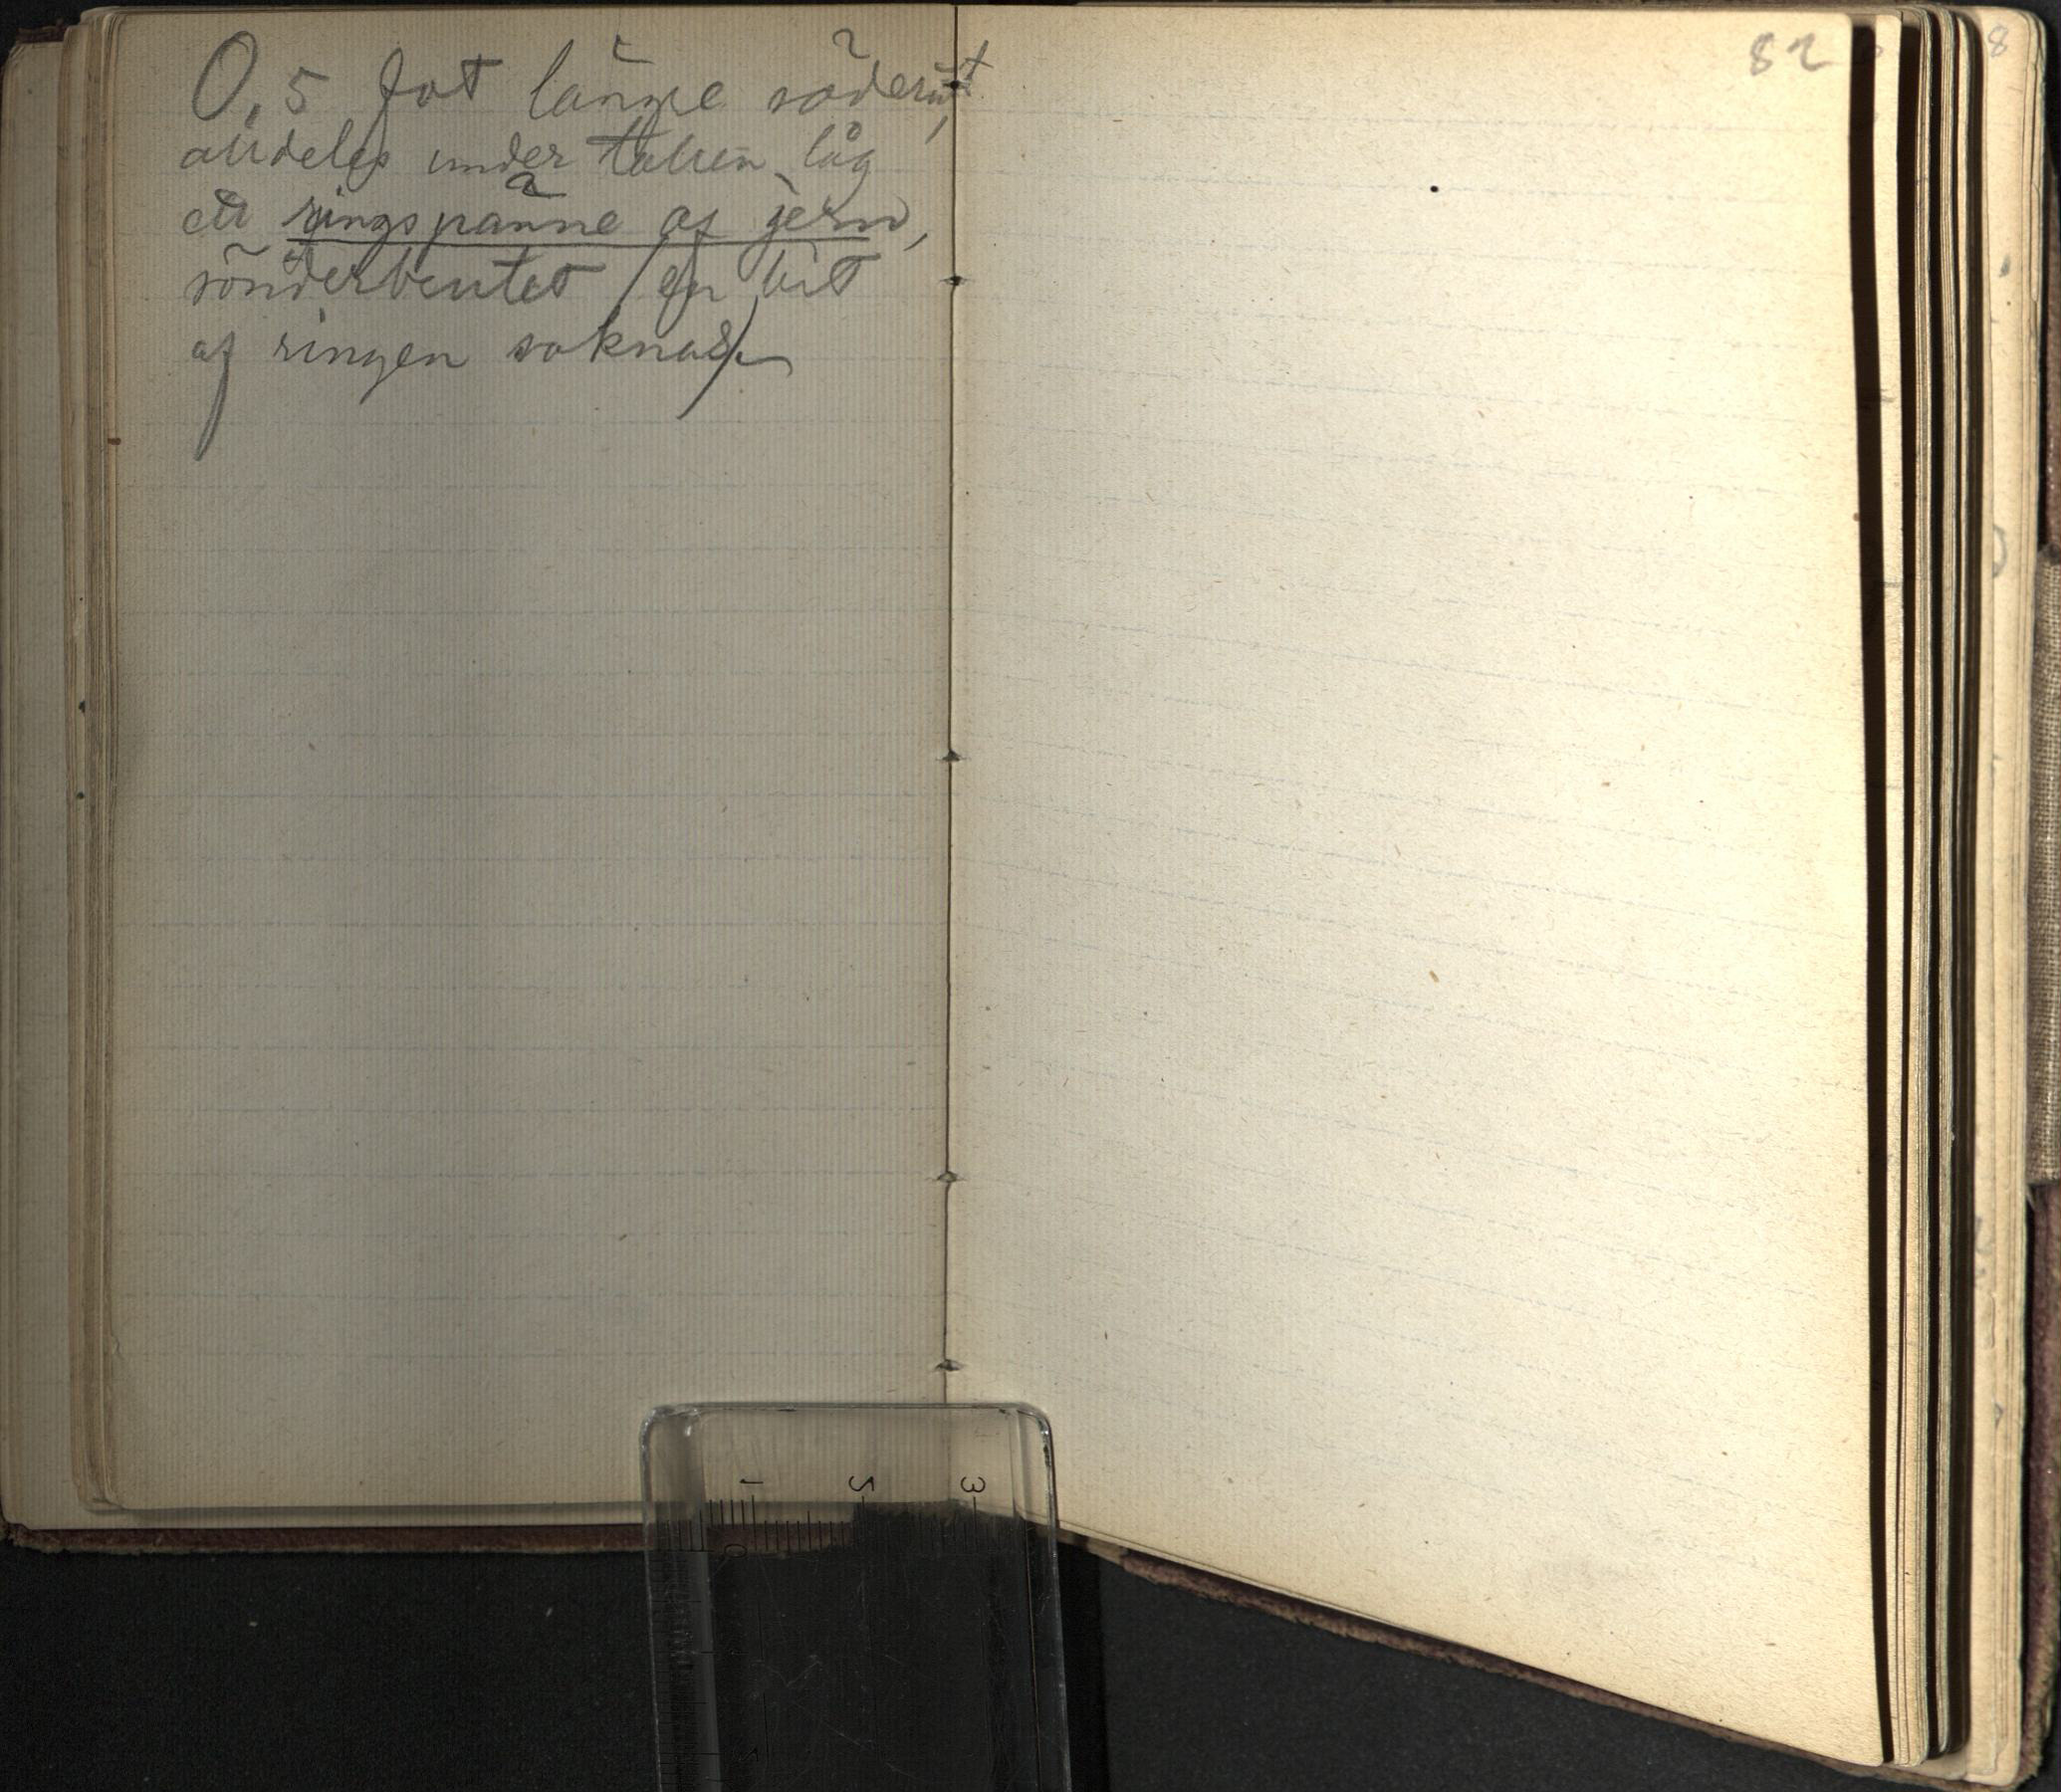 0,5 fot längre söderut,
alldeles under taket låg
ett ringspänne af jern,
sönderbrutet (en bit
af ringen saknas).
82